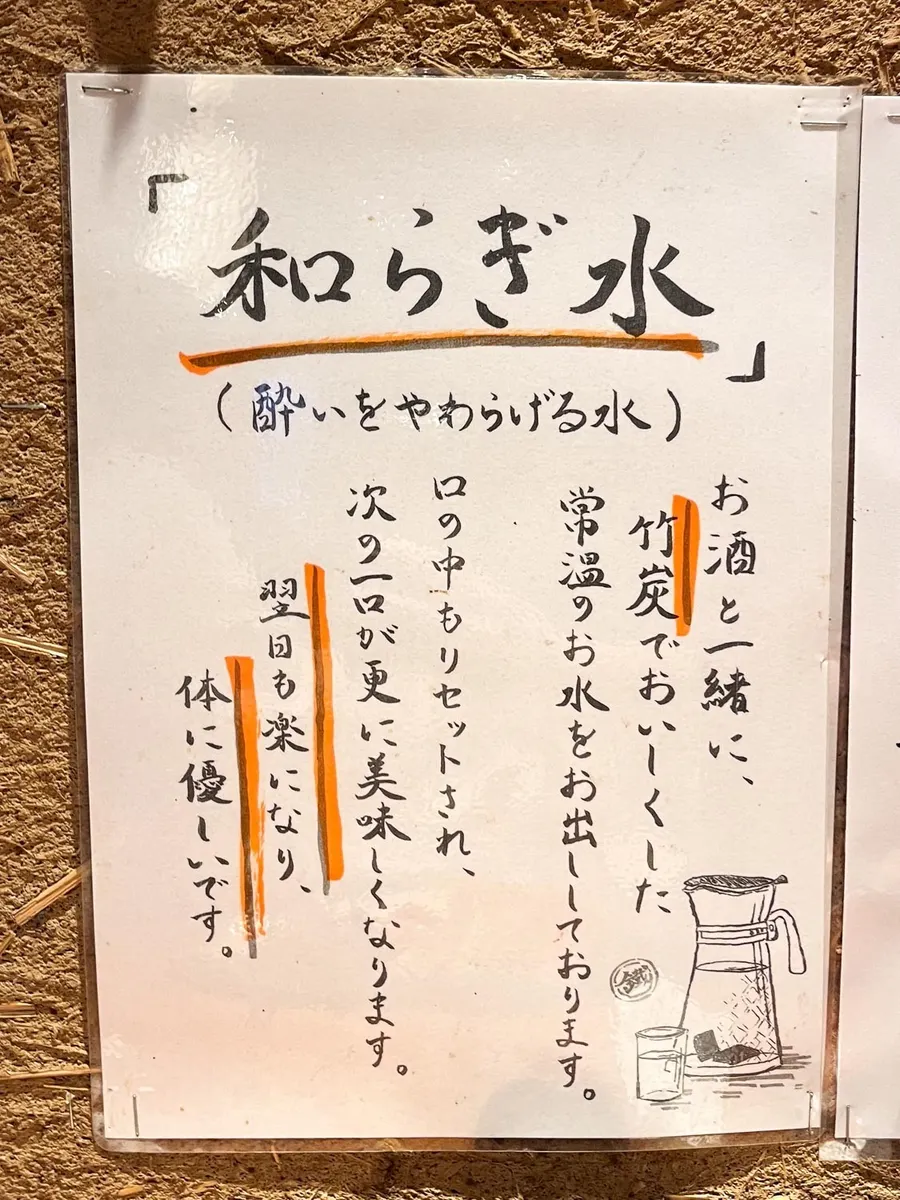 「和らぎ水」
(酔いをやわらげる水)
お酒と一緒に、
竹炭でおいしくした
常温のお水をお出ししております。
口の中もリセットされ、
次の一口が更に美味しくなります。
翌日も楽になり、
体に優しいです。